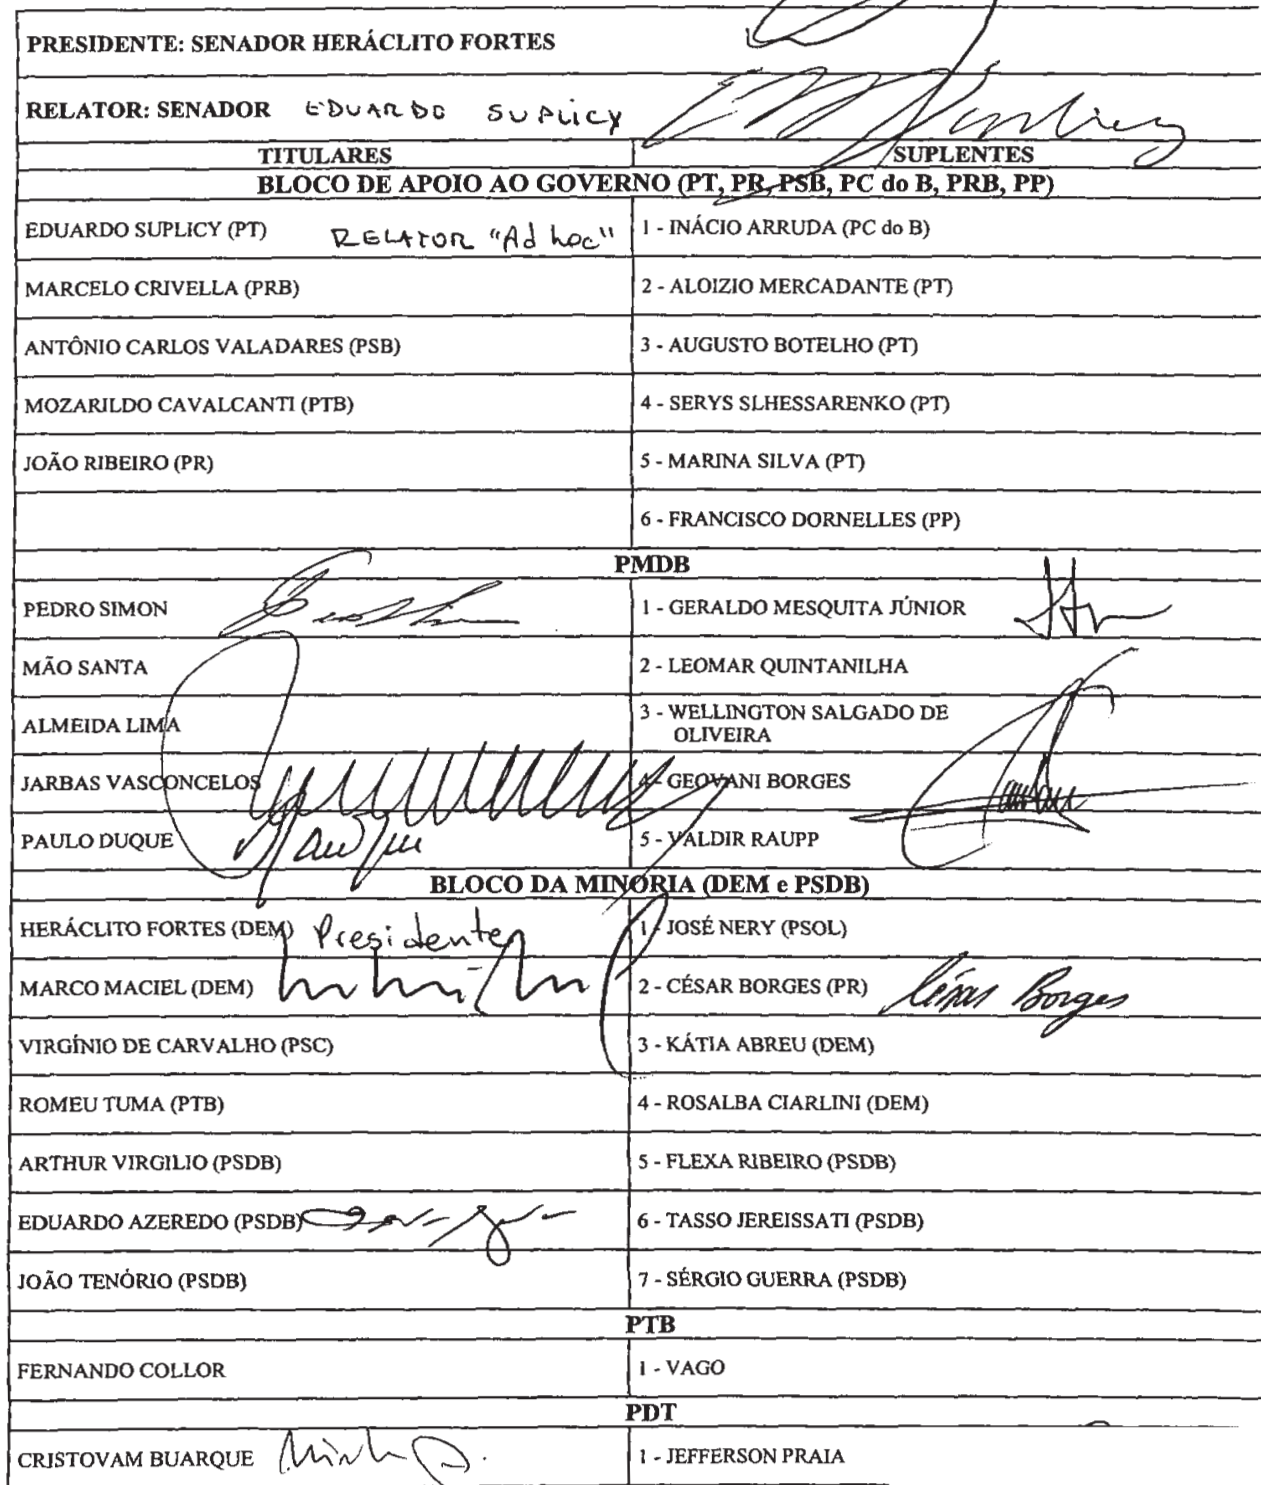 PRESIDENTE: SENADOR HERÁCLITO FORTES
RELATOR: SENADOR EDUARDO SUPLICY
TITULARES SUPLENTES
BLOCO DE APOIO AO GOVERNO (PT, PR, PSB, PC do B, PRB, PP)
EDUARDO SUPLICY (PT) RELATOR "Ad hoc" 1 - INÁCIO ARRUDA (PC do B)
MARCELO CRIVELLA (PRB) 2 - ALOIZIO MERCADANTE (PT)
ANTÔNIO CARLOS VALADARES (PSB) 3 - AUGUSTO BOTELHO (PT)
MOZARILDO CAVALCANTI (PTB) 4 - SERYS SLHESSARENKO (PT)
JOÃO RIBEIRO (PR) 5 - MARINA SILVA (PT)
6 - FRANCISCO DORNELLES (PP)
PMDB
PEDRO SIMON 1 - GERALDO MESQUITA JÚNIOR
MÃO SANTA 2 - LEOMAR QUINTANILHA
ALMEIDA LIMA 3 - WELLINGTON SALGADO DE
OLIVEIRA
JARBAS VASCONCELOS 4 - GEOVANI BORGES
PAULO DUQUE 5 - VALDIR RAUPP
BLOCO DA MINORIA (DEM e PSDB)
HERÁCLITO FORTES (DEM) Presidente 1 - JOSÉ NERY (PSOL)
MARCO MACIEL (DEM) 2 - CÉSAR BORGES (PR) César Borges
VIRGÍNIO DE CARVALHO (PSC) 3 - KÁTIA ABREU (DEM)
ROMEU TUMA (PTB) 4 - ROSALBA CIARLINI (DEM)
ARTHUR VIRGILIO (PSDB) 5 - FLEXA RIBEIRO (PSDB)
EDUARDO AZEREDO (PSDB) 6 - TASSO JEREISSATI (PSDB)
JOÃO TENÓRIO (PSDB) 7 - SÉRGIO GUERRA (PSDB)
PTB
FERNANDO COLLOR 1 - VAGO
PDT
CRISTOVAM BUARQUE 1 - JEFFERSON PRAIA